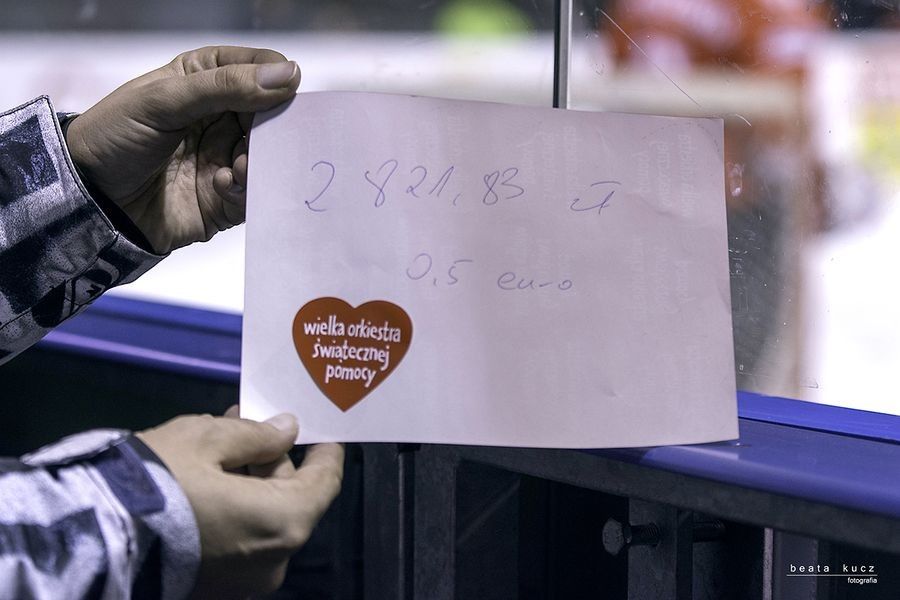 2 821,83 zł
0,5 euro
wielka orkiestra
świątecznej
pomocy
beata kucz
fotografia